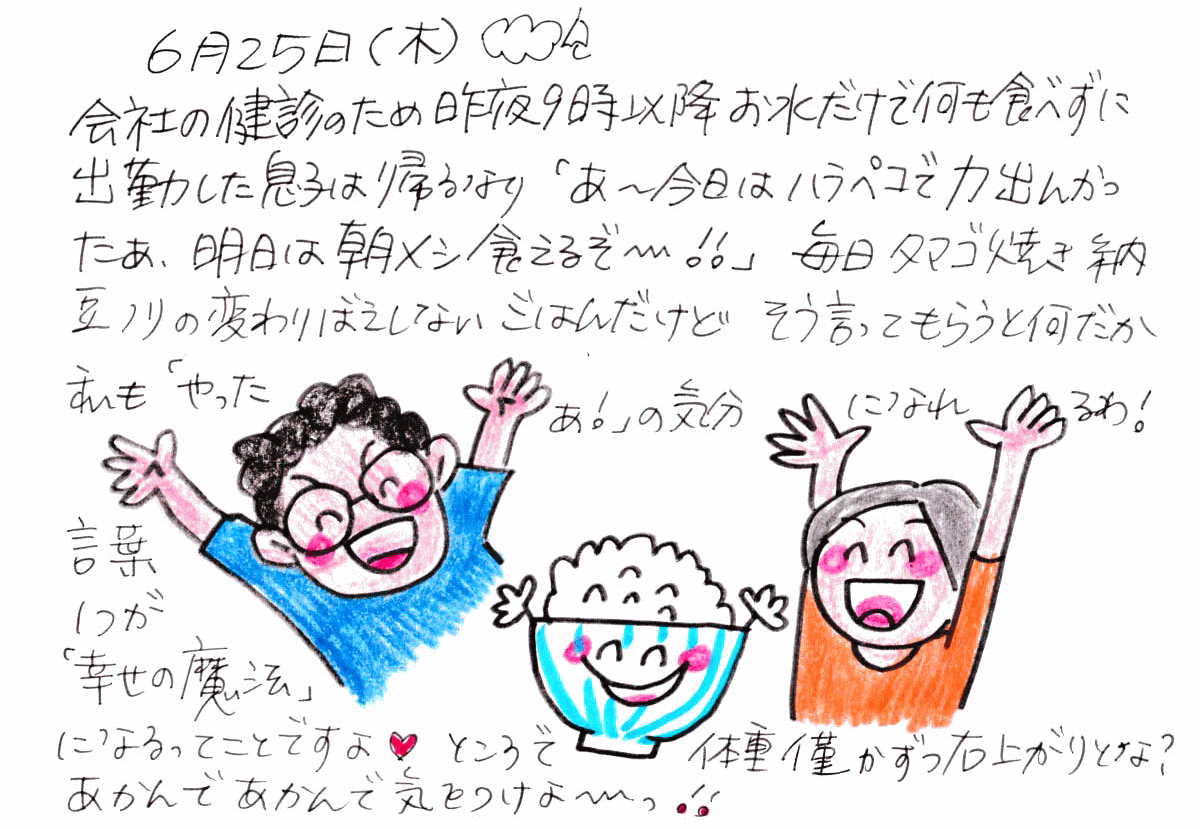 6月25日(木)
会社の健診のため昨夜9時以降お水だけで何も食べずに
出勤した息子は帰るなり「あ〜今日はハラペコで力出んかっ
たぁ、明日は朝メシ食えるぞ〜!!」毎日タマゴ焼き納
豆ノリの変わりばえしないごはんだけど そう言ってもらうと何だか
も「やった ぁ!」の気分 になれ るわ!
言葉
1つが
「幸せの魔法」
になるってことですよ♥ ところで 体重僅かずつ右上がりとな?
あかんであかんで気をつけよ〜っ!!